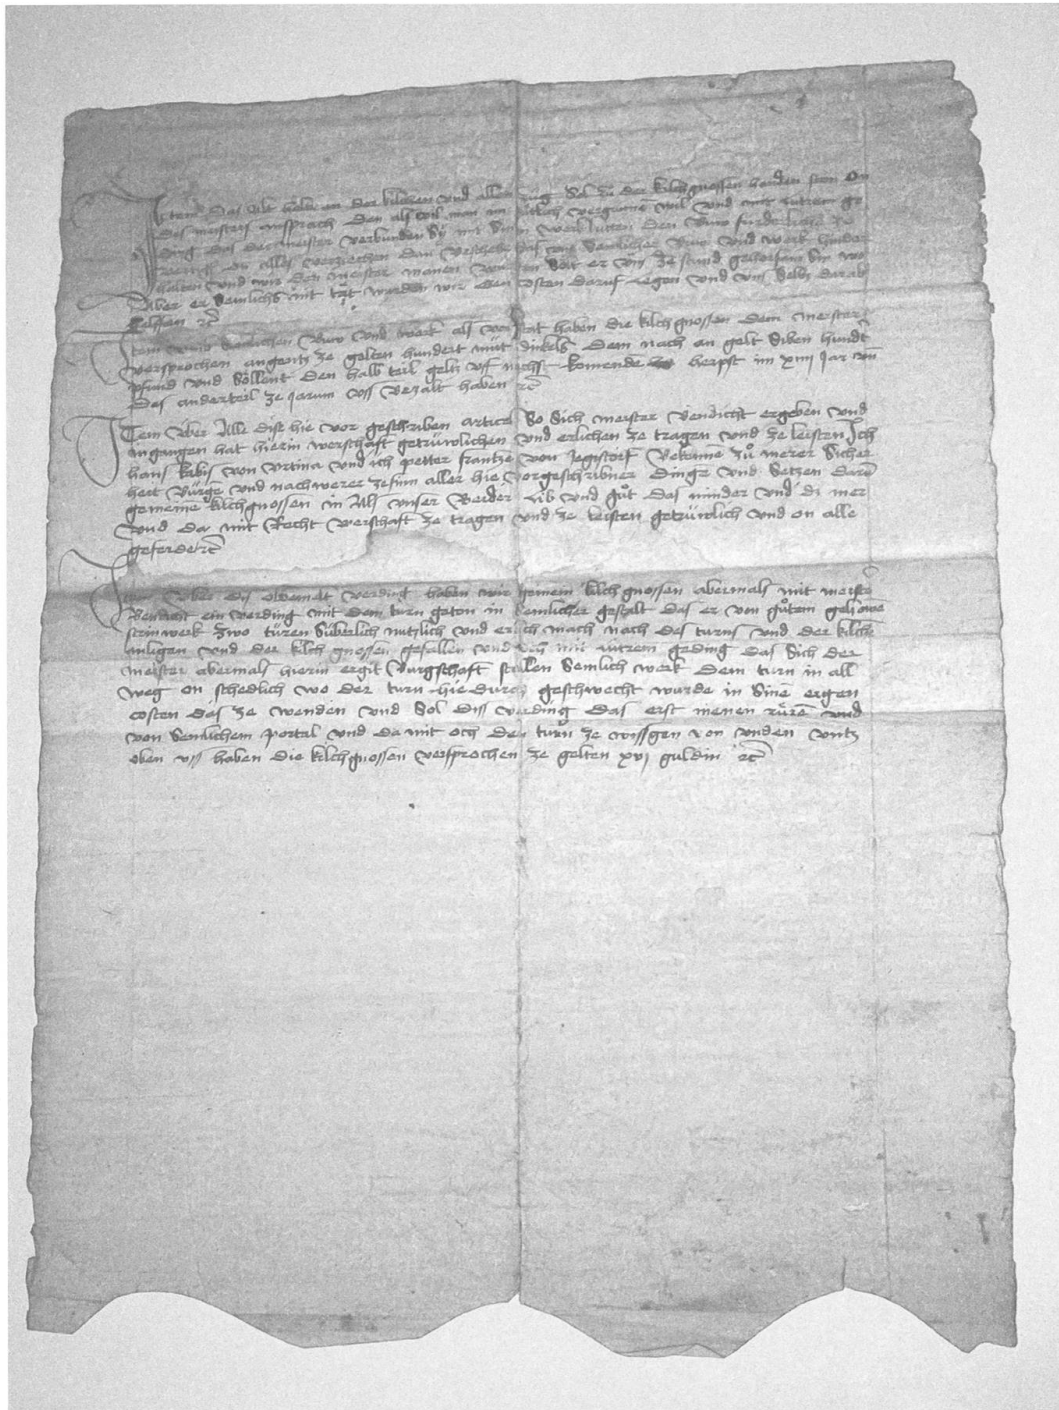 Item Das alt holtz an der kilchen und allen züg Sol zu der kilchgnossen handen ston on
des meisters ansprach Den als vil man im gütlich vergunnen wil und mit lutrem ge
ding das der meister verbunden sy mit sinen werklütten den buw furderlich ze
on alles verziechen Dan beschehe das uns semlicher buw und werk hinder
halten und wir den meister manen wurden Solt er uns ze stund gehorsam sin wo
Aber er semlichs nit tät wurden wir den costen daruf legen und uns selbs darab
helffen etc
Item umb semlichen buw und werk als vor stat haben die kilchgnossen dem meister
versprochen angentz ze gelten hundert müt dinkels Dem nach an gelt siben hundert
pfund und söllent den halb teil geltz uff nechst komende herpst im xiiij jar und
das ander teil ze jarum uss bezalt haben etc
Item über Alle dise hie vor geschriben artickel So sich meister Bendicht ergeben und
ingangen hat hierin werschaft getrüwlichen und erlichen ze tragen und ze leisten Ich
hans kabis von urtina und ich petter frantze von Jegistorf Bekenne zu merer sicher
heit bürge und nachwerer ze sinn aller hie vorgeschribner dinge und setzen darum
gemeine kilchgnossen in Als unser beider Lib und gut das minder und dz mer
und da mit Recht werschaft ze tragen und ze leisten getrüwlich und on alle
geferde etc
Item über dis obbemelt verding haben wir gemein kilchgnossen abermals mit meister
Bendicht ein verding mit dem turn geton in semlicher gestalt das er von gutem gehowe
steinwerk zwo türen süberlich nutzlich und erlich mach nach des turns und der kilche
anligen und der kilchgnossen gefallen und mit lutrem geding das sich der
meister abermals hierin ergit burgschaft stellen semlich werk dem turn in all
weg on schedlich wo der turn hie durch geschwecht wurde in sine eigen
costen das ze wenden und sol dis verding das erst nienen rüren und
von semlichem portal und da mit och den turn ze wissgen von unden untz
oben uss haben die kilchgnossen versprochen ze gelten xvj guldin etc